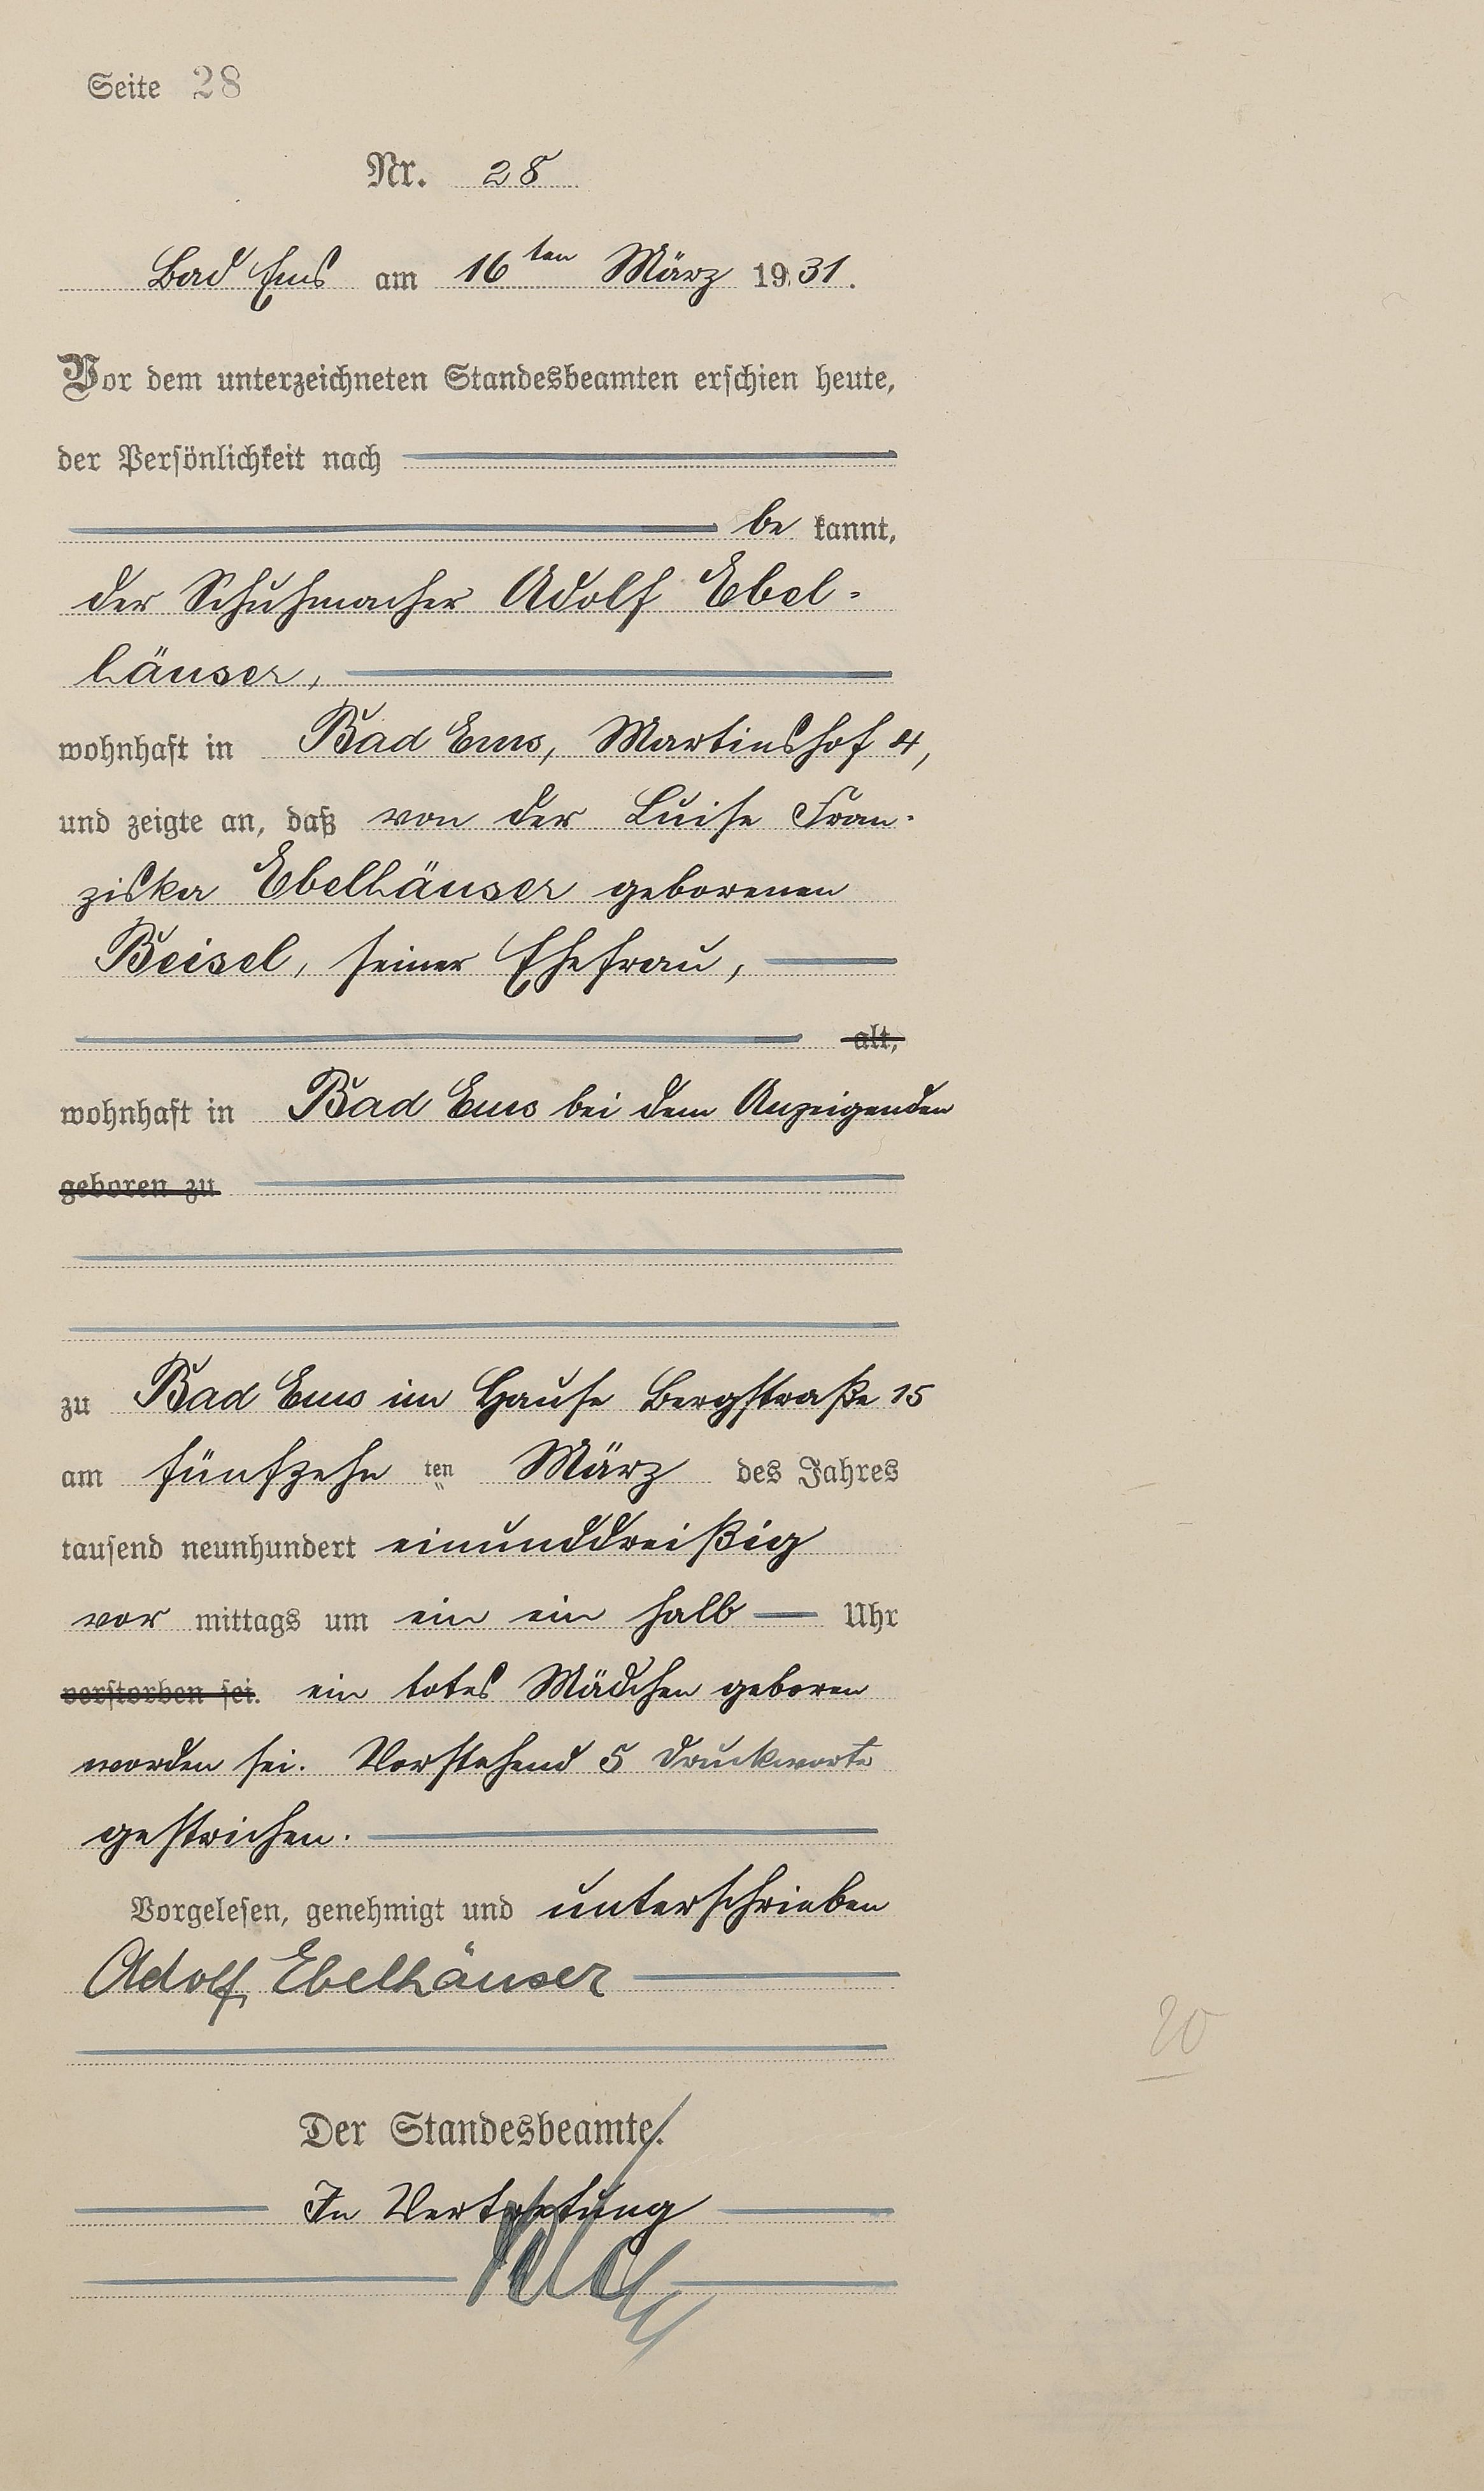 Seite 28
Nr. 28
Bad Ems am 16ten März 1931.
Vor dem unterzeichneten Standesbeamten erschien heute,
der Persönlichkeit nach
be kannt,
der Schuhmacher Adolf Ebel-
häuser,
wohnhaft in Bad Ems, Martinshof 4,
und zeigte an, daß von der Luise Fran-
ziska Ebelhäuser geborenen
Beisel, seiner Ehefrau,
alt,
wohnhaft in Bad Ems bei dem Anzeigenden
geboren zu
zu Bad Ems im Hause Bergstraße 15
am fünfzehn ten März des Jahres
tausend neunhundert einunddreißig
vor mittags um ein ein halb Uhr
verstorben sei. ein totes Mädchen geboren
worden sei. Vorstehend 5 Druckworte
gestrichen.
Vorgelesen, genehmigt und unterschrieben
Adolf Ebelhäuser
20
Der Standesbeamte.
In Vertretung